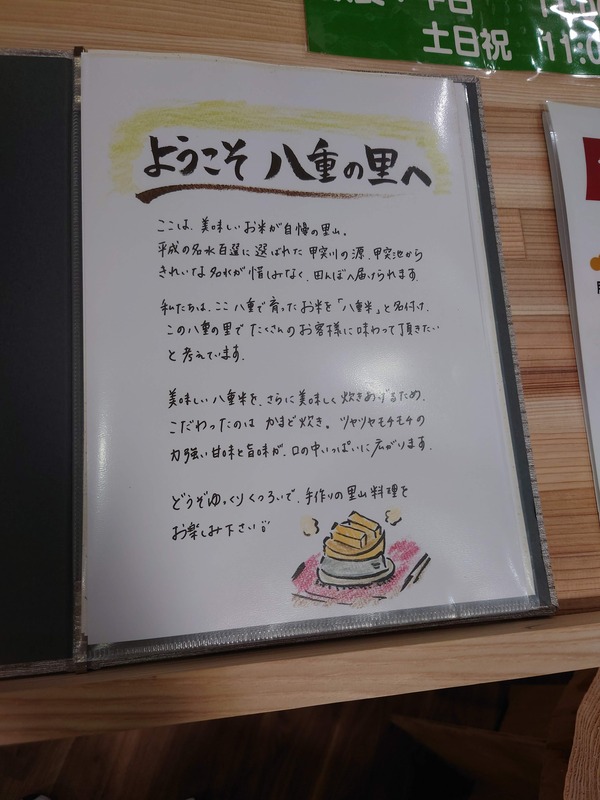 土日祝 11:0
ようこそ 八重の里へ
ここは、美味しいお米が自慢の里山。
平成の名水百選に選ばれた甲突川の源、甲突池から
きれいな名水が惜しみなく、田んぼへ届けられます。
私たちは、ここ八重で育ったお米を「八重米」と名付け、
この八重の里でたくさんのお客様に味わって頂きたい
と考えています。
美味しい八重米を、さらに美味しく炊きあげるため、
こだわったのは かまど炊き。ツヤツヤモチモチの
力強い甘味と旨味が、口の中いっぱいに広がります。
どうぞゆっくりくつろいで、手作りの里山料理を
お楽しみ下さい